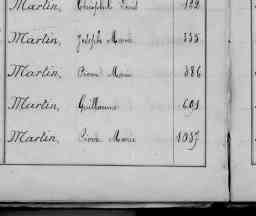 Martin,
Martin, Joseph Marie 335
Martin, Pierre Marie 386
Martin, Guillaume 691
Martin, Pierre Marie 1037